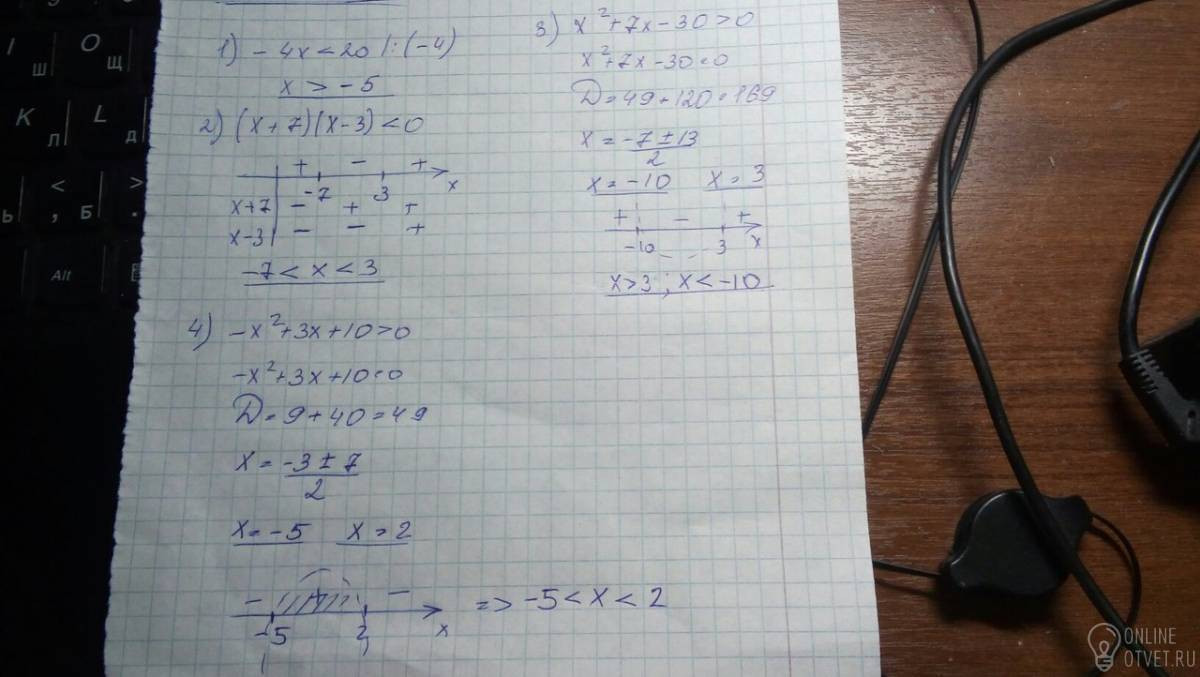 1) - 4x < 20 |: (-4)
x > - 5
2) (x + 7)(x - 3) < 0
+ - +
-7 3 x
x+7 - + +
x-3 - - +
-7 < x < 3
3) x² + 7x - 30 > 0
x² + 7x - 30 = 0
D = 49 + 120 = 169
x = -7 ± 13
2
x = -10 x = 3
+ - +
-10 3 x
x > 3 ; x < -10
4) -x² + 3x + 10 > 0
-x² + 3x + 10 = 0
D = 9 + 40 = 49
x = -3 ± 7
2
x = -5 x = 2
- + -
-5 2 x
=> -5 < x < 2
I
Ш
O
Щ
K
Л
L
Д
Ь
<
,
Б
>
.
Alt
ONLINE
OTVET.RU